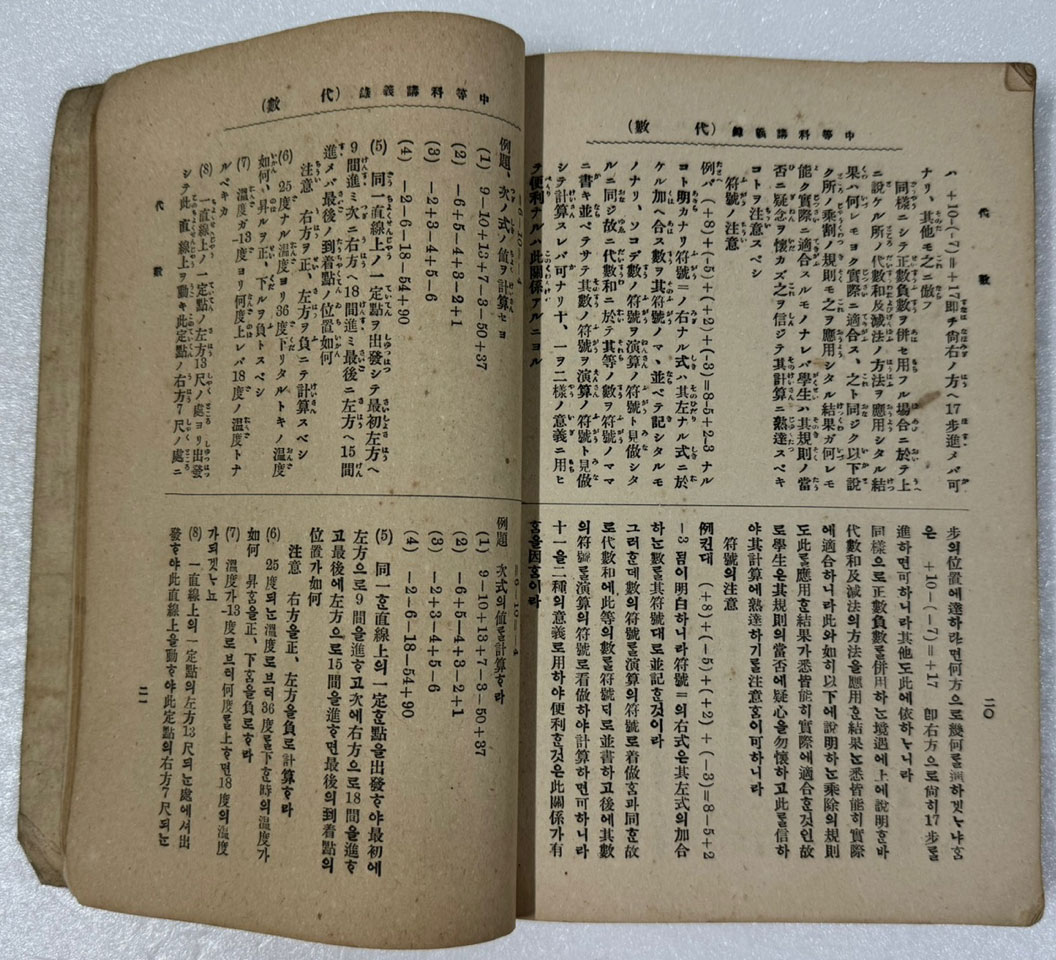 中等科講義錄 (代 數)
代 數
二〇
ハ +10-(-7)=+17即チ尙右ノ方ヘ17步進メバ可
ナリ、其他モ之ニ倣フ
同樣ニシテ正數負數ヲ併セ用フル場合ニ於テ上
ニ說ケル所ノ代數和及減法ノ方法ヲ應用シタル結
果ハ何レモヨク實際ニ適合ス、之ト同ジク以下說
ク所ノ乘割ノ規則モ之ヲ應用シタル結果ガ何レモ
能ク實際ニ適合スルモノナレバ學生ハ其規則ノ當
否ニ疑念ヲ懷カズ之ヲ信ジテ其計算ニ熟達スベキ
コトヲ注意スベシ
符號ノ注意
例バ (+8)+(-5)+(+2)+(-3)=8-5+2-3 ナル
コト明カナリ符號=ノ右ナル式ハ其左ナル式ニ於
ケル加ヘ合ス數ヲ其符號ノマヽ並ベテ記シタルモ
ノナリ、ソコデ數ノ符號ヲ演算ノ符號ト見做シタ
ルニ同ジ故ニ代數和ニ於テ其等ノ數ヲ符號ノママ
ニ書キ並ベテサテ其數ノ符號ヲ演算ノ符號ト見做
シテ計算スレバ可ナリ十、一ヲ二樣ノ意義ニ用ヒ
テ便利ナルハ此關係アルニヨル
步의位置에達하랴면何方으로幾何를進하겟ᄂ냐홈
은 +10-(-7)=+17 卽右方으로尙히17步를
進하면可하니라其他도此에依하ᄂ니라
同樣으로正數負數를併用하ᄂ境遇에上에說明ᄒ바
代數和及減法의方法을應用ᄒ結果ᄂ悉皆能히實際
에適合하니라此와如히以下에說明하ᄂ乘除의規則
도此를應用ᄒ結果가悉皆能히實際에適合ᄒ것인故
로學生은其規則의當否에疑心을勿懷하고此를信하
야其計算에熟達하기를注意홈이可하니라
符號의注意
例컨대 (+8)+(-5)+(+2)+(-3)=8-5+2
-3 됨이明白하니라符號=의右式은其左式의加合
하ᄂ數를其符號대로並記ᄒ것이라
그러ᄒ데數의符號를演算의符號로看做홈과同ᄒ故
로代數和에此等의數를符號딕로並書하고後에其數
의符號를演算의符號로看做하야計算하면可하니라
十一을二種의意義로用하야便利ᄒ것은此關係가有
홈을因홈이라
中等科講義錄 (代 數)
例題、次ノ式ノ値ヲ計算セヨ
(1) 9-10+13+7-3-50+37
(2) -6+5-4+3-2+1
(3) -2+3-4+5-6
(4) -2-6-18-54+90
(5) 同一直線上ノ一定點ヲ出發シテ最初左方ヘ
9間進ミ次ニ右方ヘ18間進ミ最後ニ左方ヘ15間
進メバ最後ノ到着點ノ位置如何
注意 右方ヲ正、左方ヲ負ニテ計算スベシ
(6) 25度ナル溫度ヨリ36度下リタルトキノ溫度
如何、昇ルヲ正、下ルヲ負トスベシ
(7) 溫度ガ-13度ヨリ何度上レバ18度ノ溫度トナ
ルベキカ
(8) 一直線上ノ一定點ノ左方13尺ノ處ヨリ出發
シテ此直線上ヲ動キ此定點ノ右方7尺ノ處ニ
例題 次式의値를計算ᄒ라
(1) 9-10+13+7-3-50+37
(2) -6+5-4+3-2+1
(3) -2+3-4+5-6
(4) -2-6-18-54+90
(5) 同一ᄒ直線上의一定ᄒ點을出發ᄒ야最初에
左方으로9間을進ᄒ고次에右方으로18間을進ᄒ
고最後에左方으로15間을進ᄒ면最後의到着點의
位置가如何
注意 右方을正、左方을負로計算ᄒ라
(6) 25度되ᄂ溫度로브터36度를下ᄒ時의溫度가
如何 昇홈을正、下홈을負로ᄒ라
(7) 溫度가-13度로브터何度를上ᄒ면18度의溫度
가되겟ᄂ뇨
(8) 一直線上의一定點의左方13尺되ᄂ處에셔出
發ᄒ야此直線上을動ᄒ야此定點의右方7尺되ᄂ
代 數
二一